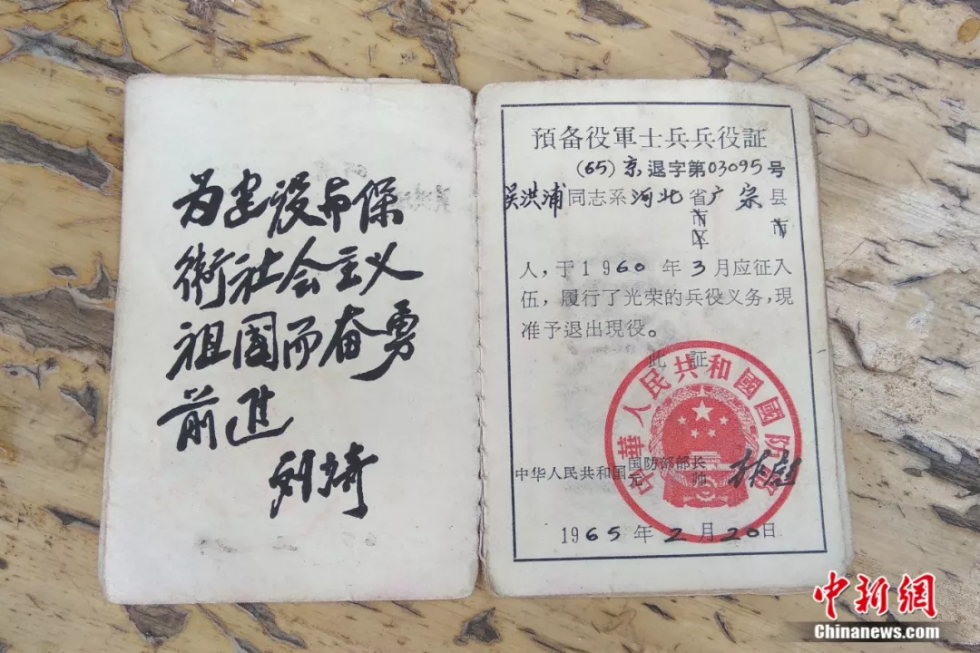 为建设与保
衛社会主义
祖国而奋勇
前进
刘琦
預备役軍士兵兵役証
(65)京退字第03095号
吴洪浦同志系河北省广宗县
市
市
区
人，于1960年3月应征入
伍，履行了光荣的兵役义务，現
准予退出現役。
此証
中华人民共和国国防部部长
元帅
林彪
1965年2月20日
中華人民共和國國防部
中新網
Chinanews.com